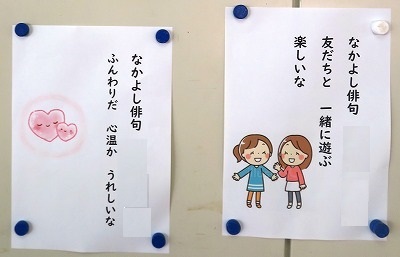 なかよし俳句
友だちと　一緒に遊ぶ
楽しいな
なかよし俳句
ふんわりだ　心温か　うれしいな